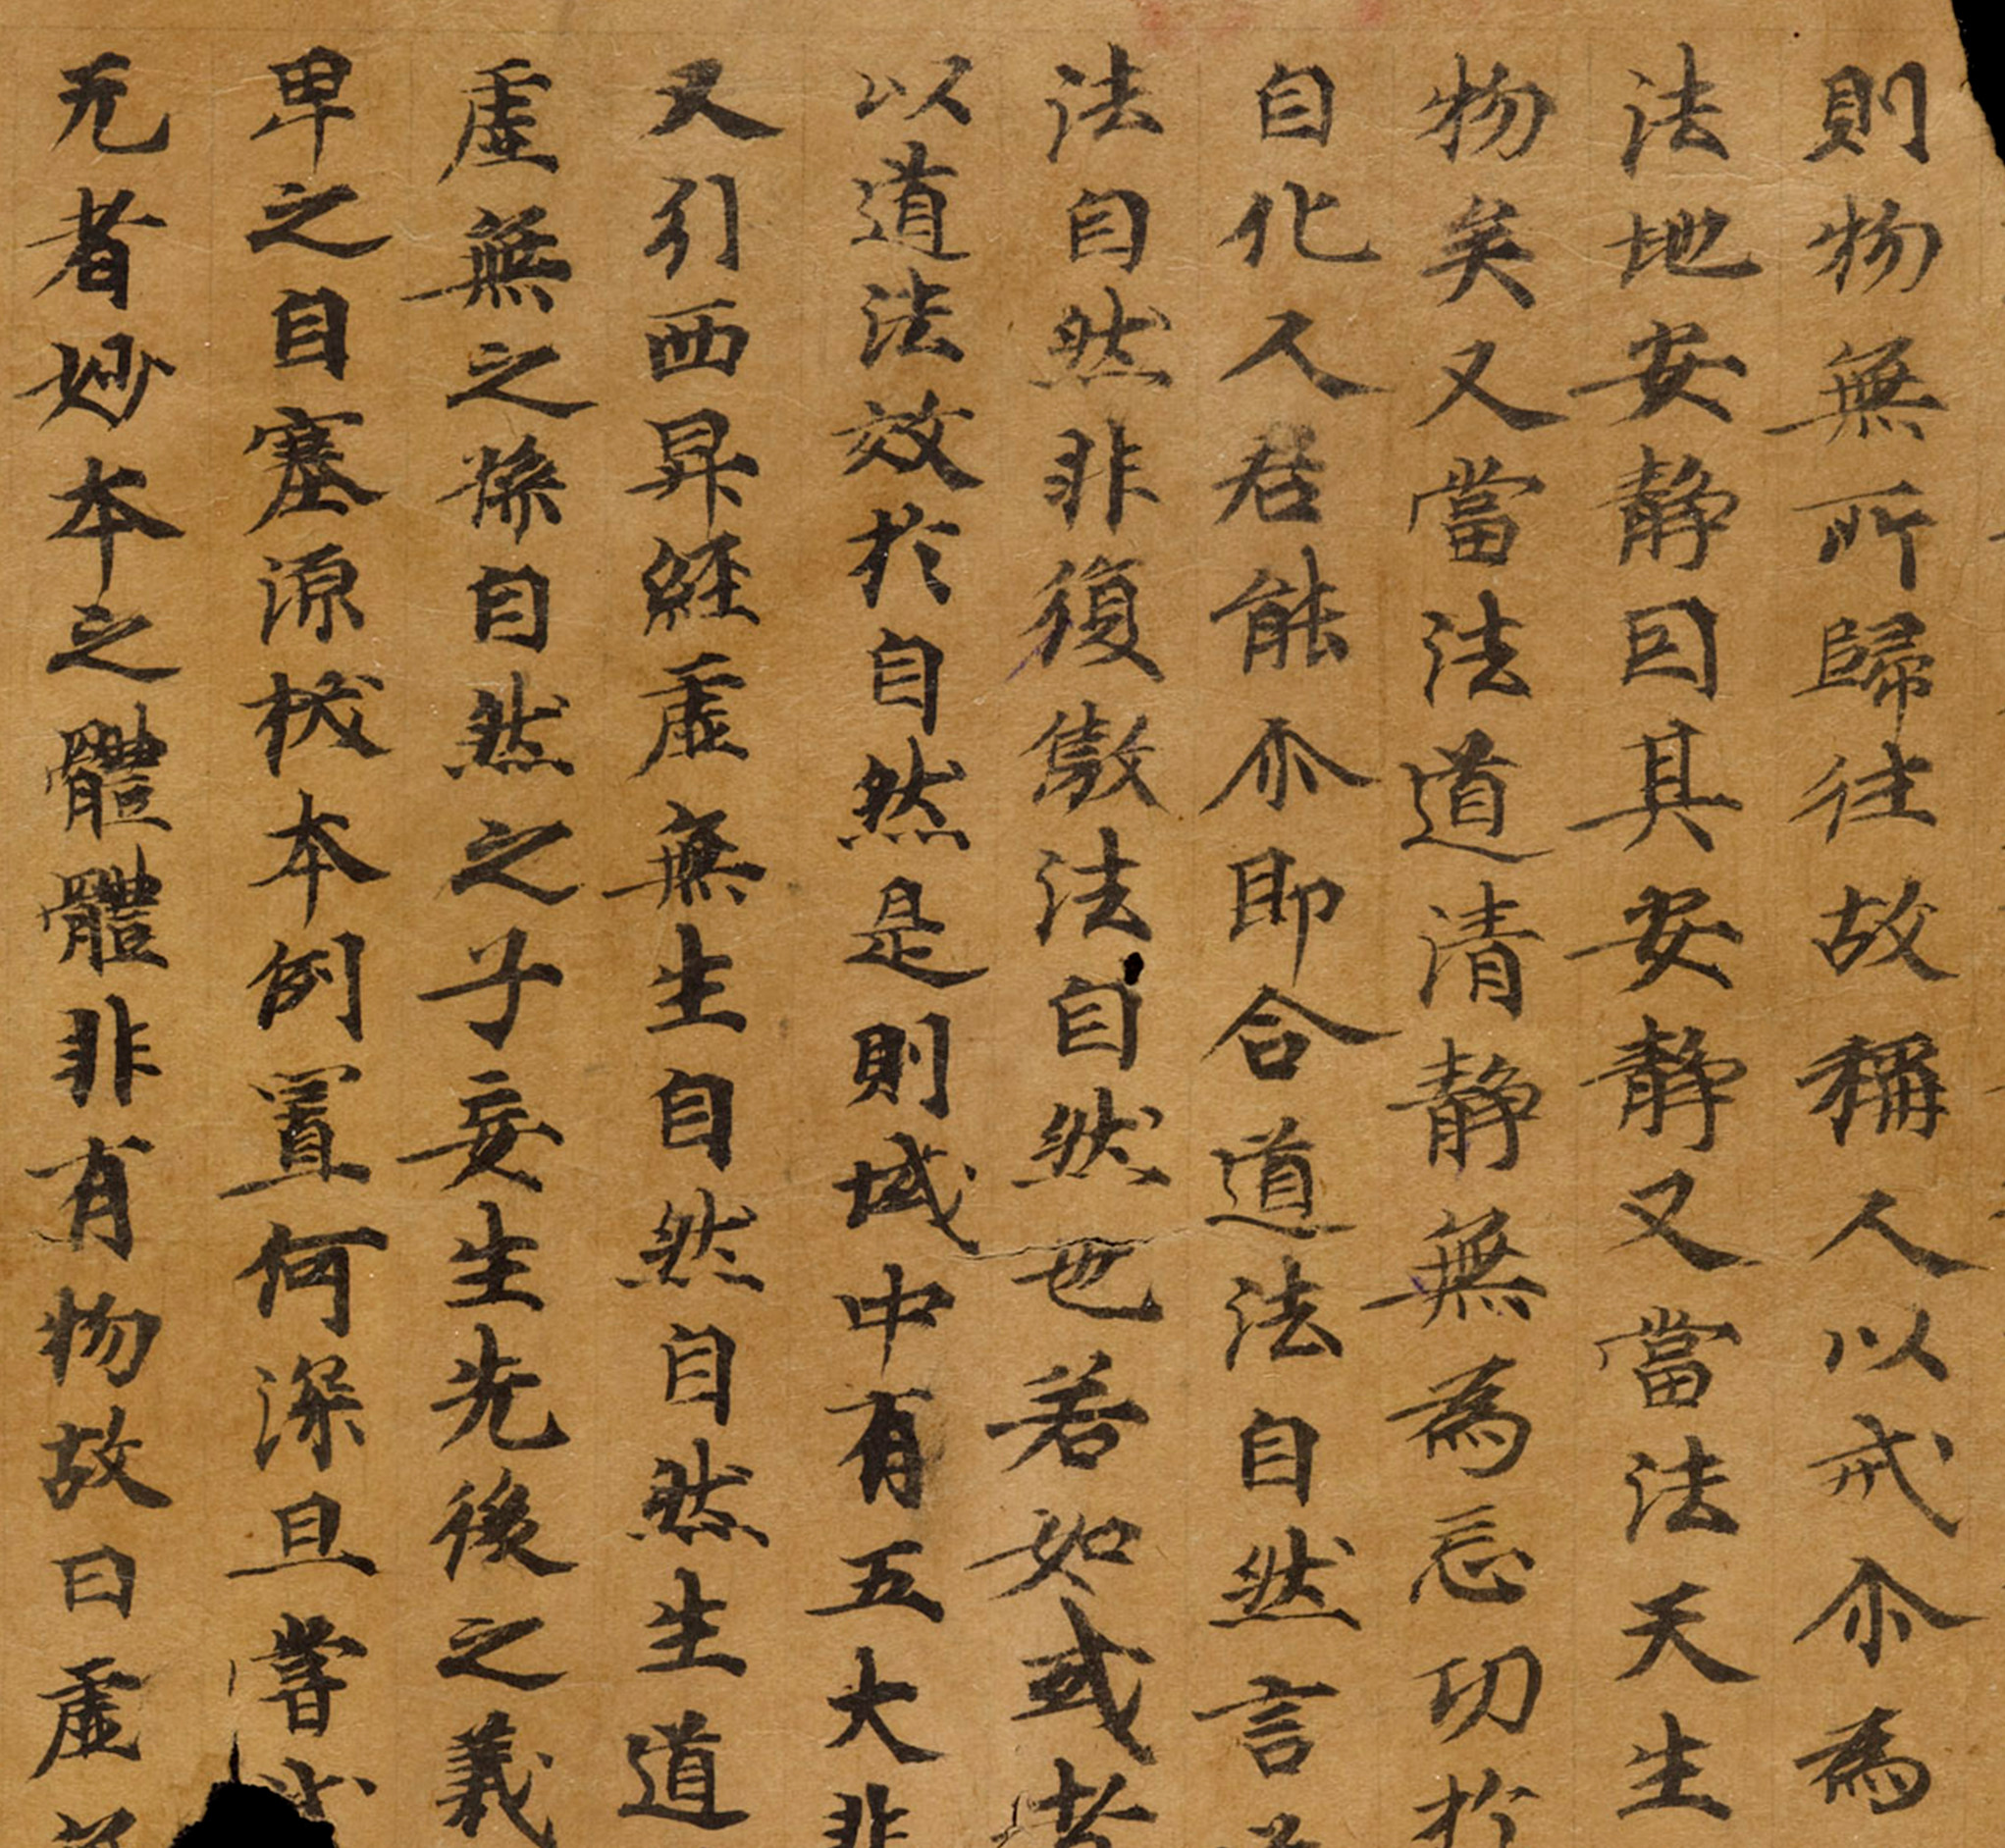 則物無所歸往故稱人以戒尒為
法地安静因其安静又當法天生
物矣又當法道清静無為忘功於
自化人君能尒即合道法自然言
法自然非復倣法自然也若如或者
以道法效於自然是則域中有五大非
又引西昇經虛無生自然自然生道
虛無之孫自然之子妄生先後之義
卑之自塞源拔本例置何深且嘗
无者妙本之體體非有物故曰虛